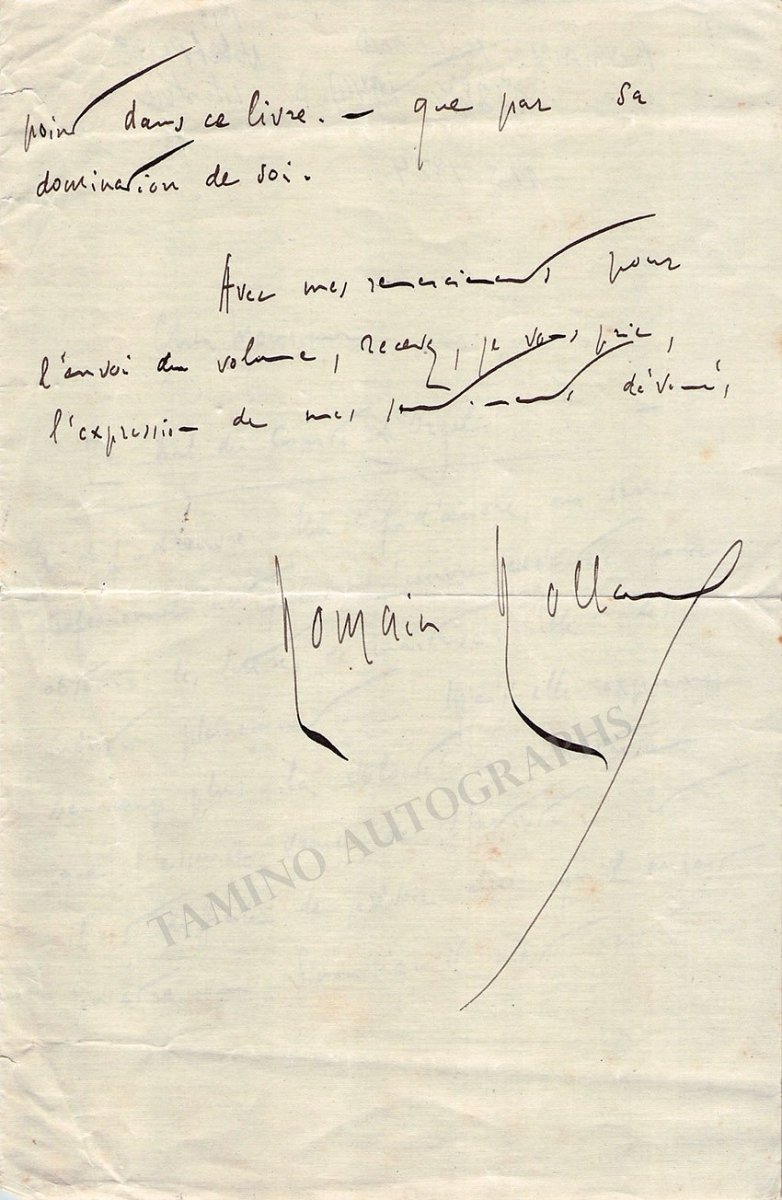 point dans ce livre. — que par sa
domination de soi.
Avec mes remerciements pour
l'envoi du volume, recevez, je vous prie,
l'expression de mes sentiments dévoués,
Romain Rolland
TAMINO AUTOGRAPHS